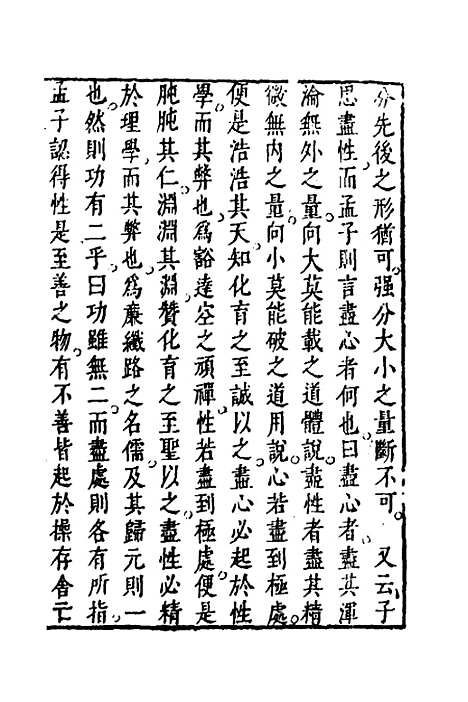 分先後之形猶可强分大小之量斷不可　又云子
思盡性而孟子則言盡心者何也曰盡心者盡其渾
淪無外之量向大莫能載之道體說盡性者盡其精
微無内之量向小莫能破之道用說心若盡到極處
便是浩浩其天知化育之至誠以之盡心必起於性
學而其弊也爲豁達空之頑禪性若盡到極處便是
肫肫其仁淵淵其淵贊化育之至聖以之盡性必精
於理學而其弊也爲廉纖路之名儒及其歸元則一
也然則功有二乎曰功雖無二而盡處則各有所指
孟子認得性是至善之物有不善皆起於操存舍亡